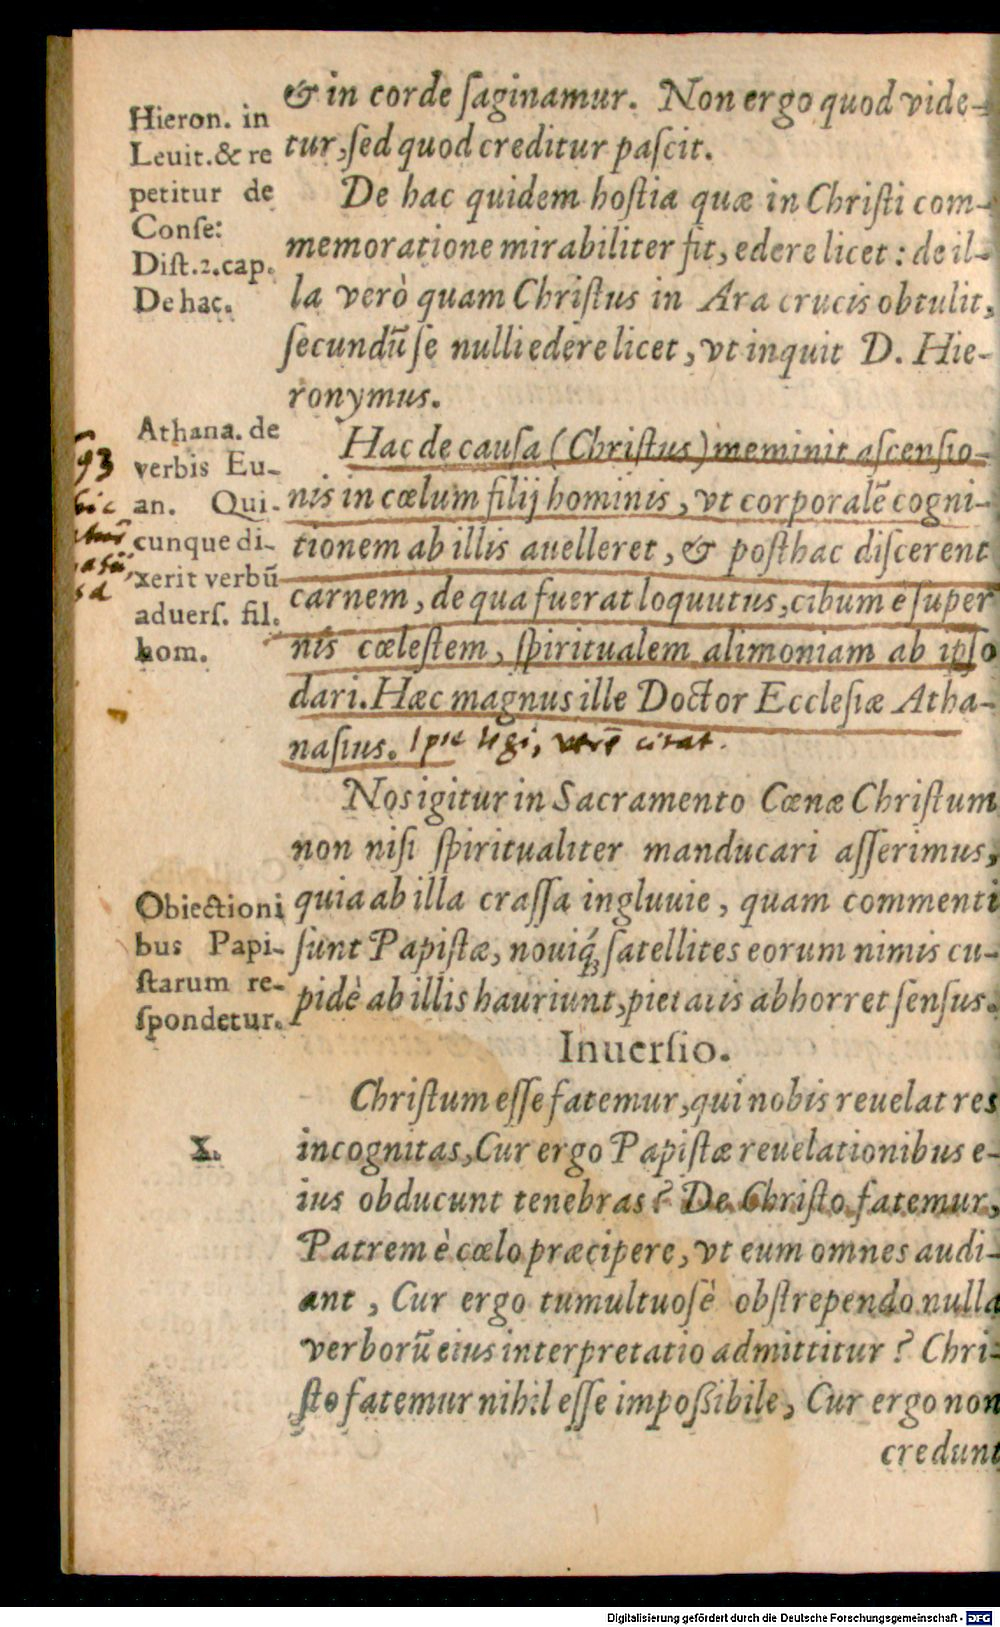 & in corde ſaginamur. Non ergo quod vide-
tur, ſed quod creditur paſcit.
Hieron. in
Leuit. & re
petitur de
Conſe:
Diſt. 2. cap.
De hac.
De hac quidem hoſtia quæ in Chriſti com-
memoratione mirabiliter fit, edere licet: de il-
la verò quam Chriſtus in Ara crucis obtulit,
ſecundū ſe nulli edere licet, vt inquit D. Hie-
ronymus.
Athana. de
verbis Eu-
an. Qui-
cunque di-
xerit verbū
aduerſ. fil.
hom.
93
hic
Hac de cauſa (Chriſtus) meminit aſcenſio-
nis in cœlum filij hominis, vt corporalē cogni-
tionem ab illis auelleret, & poſthac diſcerent
carnem, de qua fuerat loquutus, cibum è ſuper
nis cœleſtem, ſpiritualem alimoniam ab ipſo
dari. Hæc magnus ille Doctor Eccleſiæ Atha-
naſius. Ipse legi, vere citat.
Nos igitur in Sacramento Cœnæ Chriſtum
non niſi ſpiritualiter manducari aſſerimus,
quia ab illa craſſa ingluuie, quam commenti
ſunt Papiſtæ, nouiq́; ſatellites eorum nimis cu-
pidè ab illis hauriunt, pietatis abhorret ſenſus.
Obiectioni
bus Papi-
ſtarum re-
ſpondetur.
Inuerſio.
X.
Chriſtum eſſe fatemur, qui nobis reuelat res
incognitas, Cur ergo Papiſtæ reuelationibus e-
ius obducunt tenebras? De Chriſto fatemur,
Patrem è cœlo præcipere, vt eum omnes audi-
ant, Cur ergo tumultuoſè obſtrependo nulla
verborū eius interpretatio admittitur? Chri-
ſto fatemur nihil eſſe impoßibile, Cur ergo non
credunt
Digitalisierung gefördert durch die Deutsche Forschungsgemeinschaft - DFG